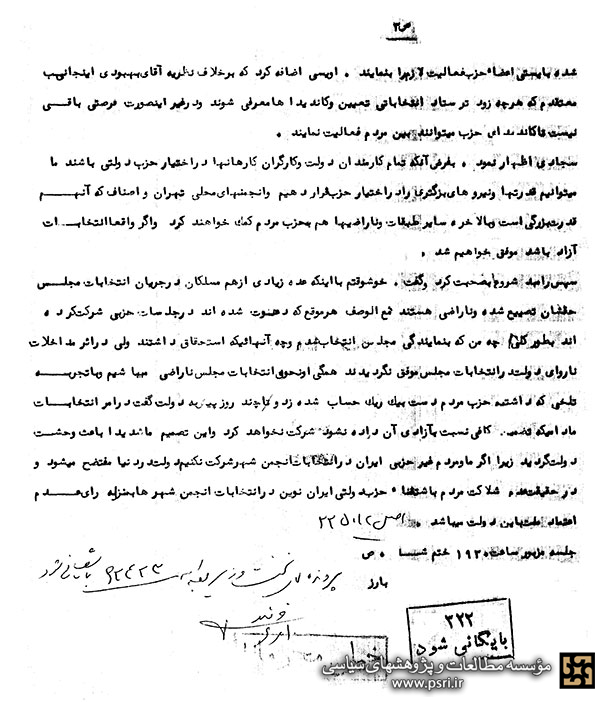 ص۲
شده بایستی اعضاء حزب فعالیت لازم را بنمایند . اویسی اضافه کرد که برخلاف نظریه آقای بهبودی اینجانب
معتقدم که هرچه زود تر ستاد انتخاباتی تعیین وکاندیدا ها معرفی شوند ودر غیر اینصورت فرصتی باقی
نیست تا کاندیدای حزب میتوانند بین مردم فعالیت نمایند .
سجادی اظهار نمود . بفرض آنکه تمام کارمندان دولت وکارگران کارخانها در اختیار حزب دولتی باشند ما
میتوانیم قدرتها ونیرو های بزرگتری را در اختیار حزب قرار دهیم وانجمنهای محلی تهران و اصناف که آنهم
قدرت بزرگی است وبالاخره سایر طبقات وناراضیها هم بحزب مردم کمک خواهند کرد واگر واقعا انتخابات
آزاد باشد موفق خواهیم شد .
سپس رامبد شروع بصحبت کرد وگفت . خوشوقتم با اینکه عده زیادی از هم مسلکان در جریان انتخابات مجلس
حقشان تضییع شده وناراضی هستند مع الوصف هر موقع که دعوت شده اند در جلسات حزبی شرکت کرده
اند بطور کلی چه من که بنمایندگی مجلس انتخاب شدم وچه آنهائیکه استحقاق داشتند ولی در اثر مداخلات
ناروای دولت در انتخابات مجلس موفق نگردیدند همگی از نحوه انتخابات مجلس ناراضی میباشیم وبا تجربه
تلخی که داشته حزب مردم دست بیک ریک حساب شده زد و تا چند روز پیش به دولت گفت در امر انتخابات
مادامیکه تضمین کافی نسبت بآزادی آن داده نشود شرکت نخواهد کرد واین تصمیم ما شدیدا باعث وحشت
دولت گردید زیرا اگر ما ومردم غیر حزبی ایران در انتخابات انجمن شهر شرکت نکنیم دولت در دنیا مفتضح میشود و
در حقیقت عدم شرکت مردم باستثناء حزب دولتی ایران نوین در انتخابات انجمن شهر ها بمنزله رای عدم
اعتماد ملت باین دولت میباشد . اصل ۲۲۵۰۱۲
جلسه مزبور ساعت ۱۹۳۰ ختم شد . ص
بارز
پرونده
۹۲۴۲۳ بایگانی شود
۲۲۲
بایگانی شود
مؤسسه مطالعات و پژوهشهای سیاسی
www.psri.ir